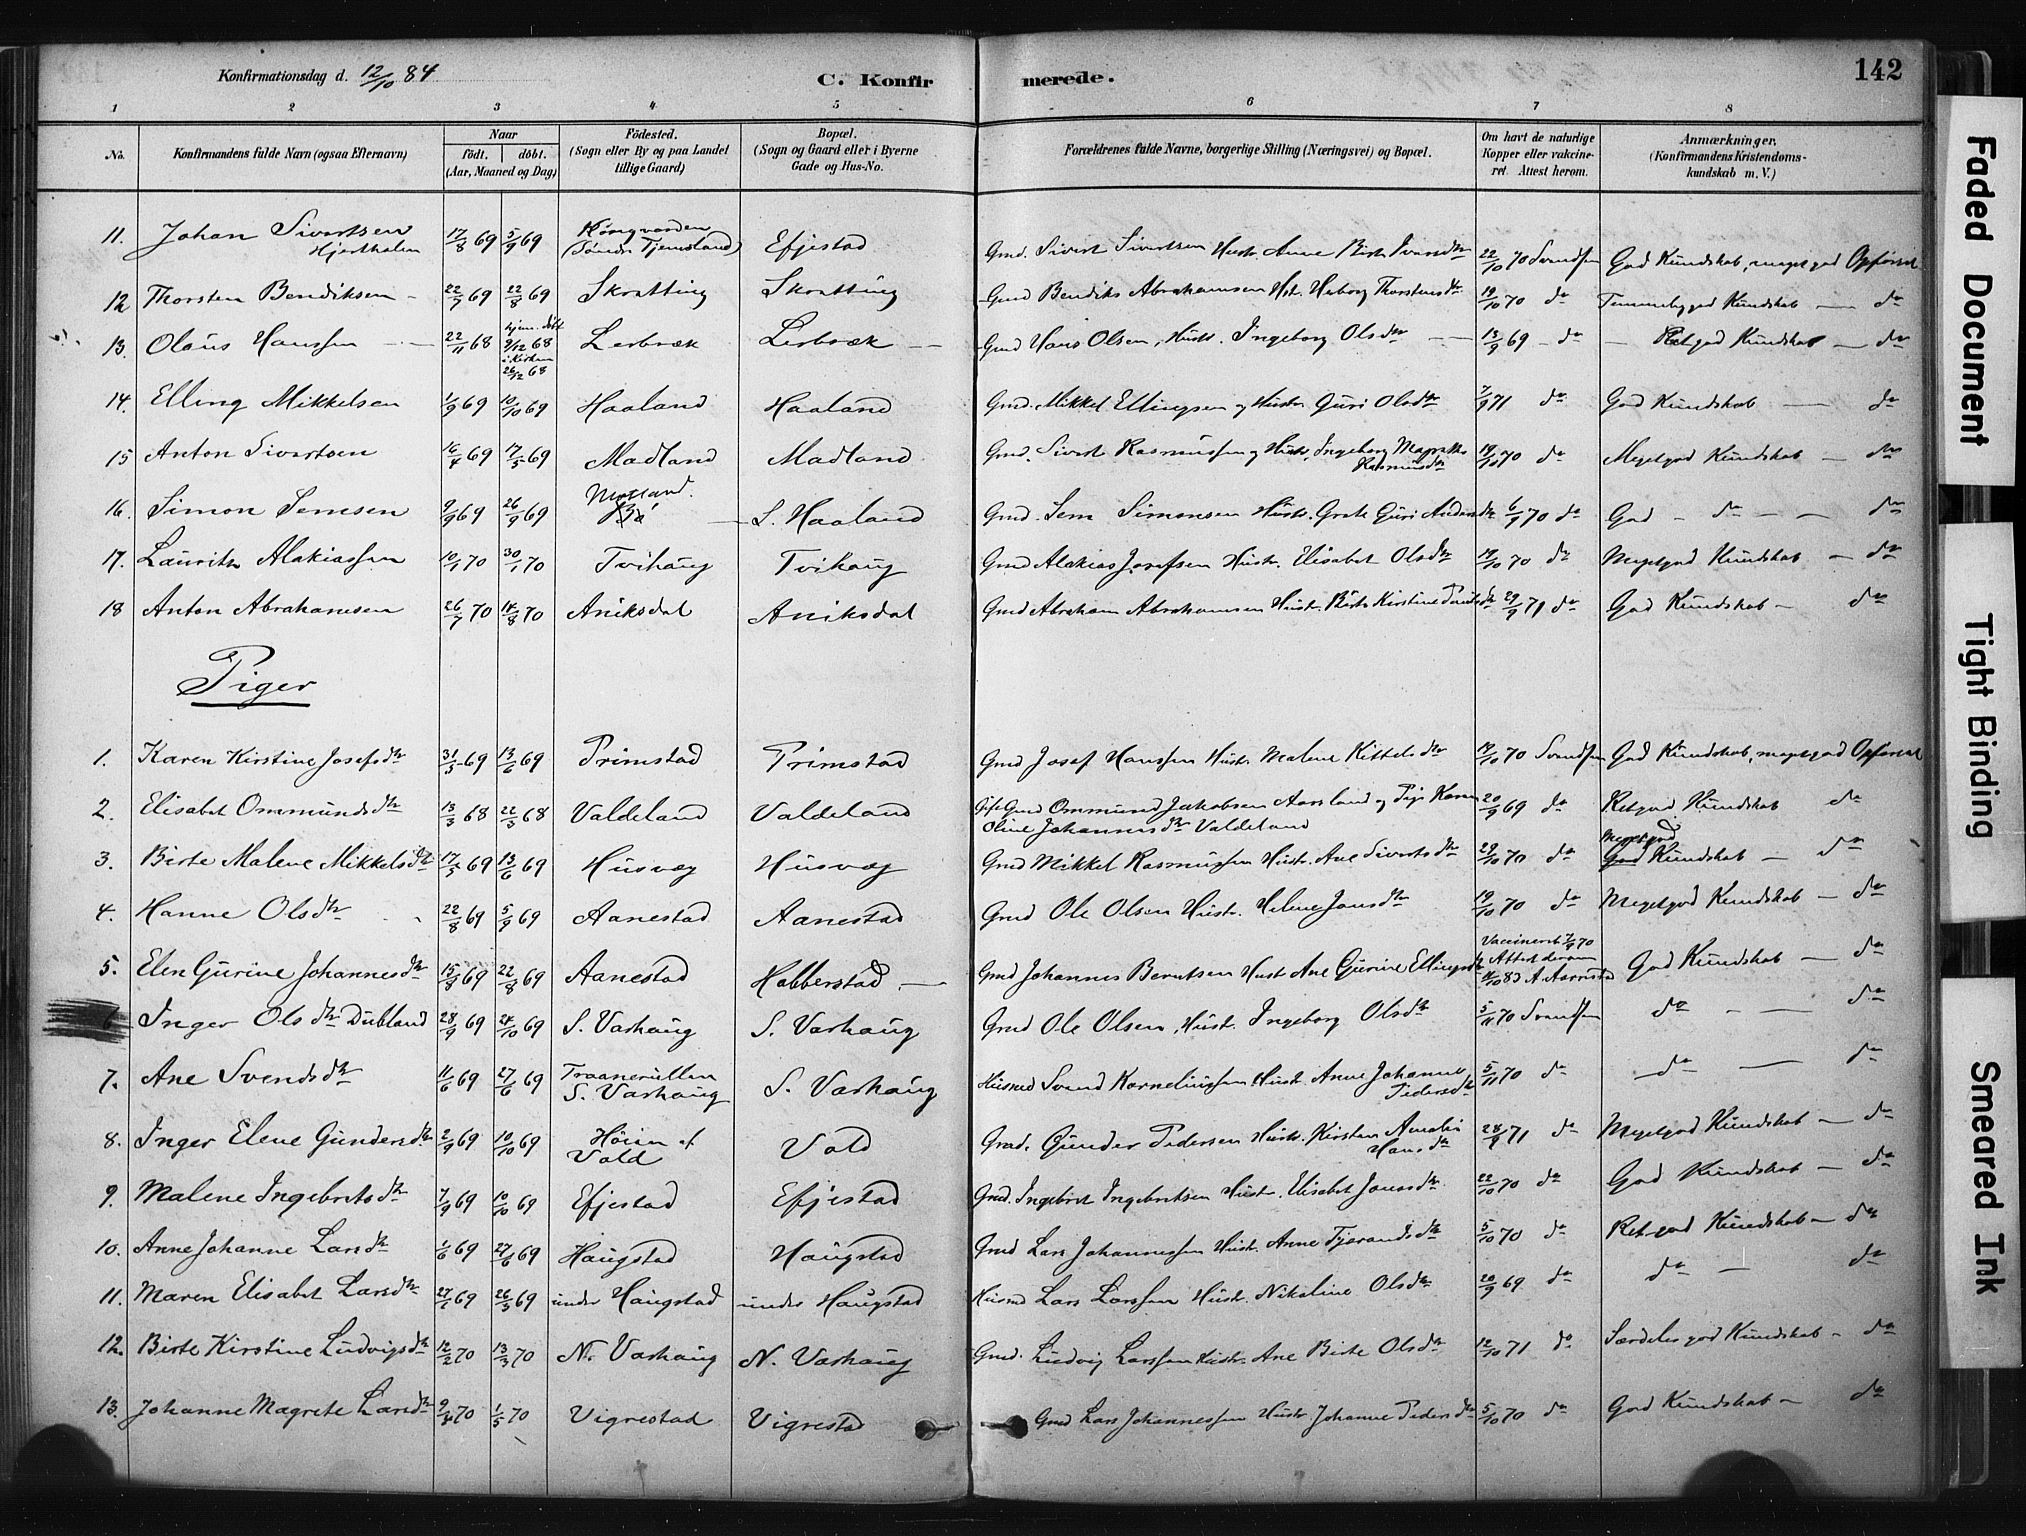 Konfirmationsdag d. 12/10 84
C. Konfirmerede.
142
1 2 3 4 5 6 7 8
No. Konfirmandens fulde Navn (ogsaa Efternavn) Naar födt. döbt. (Aar, Maaned og Dag) Födested. (Sogn eller By og paa Landet tillige Gaard) Bopæl. (Sogn og Gaard eller i Byerne Gade og Hus-No. Forældrenes fulde Navne, borgerlige Stilling (Næringsvei) og Bopæl. Om havt de naturlige Kopper eller vakcineret. Attest herom. Anmærkninger. (Konfirmandens Kristendomskundskab m. V.)
11. Johan Sivertsen Hjerthalen 17/8 69 5/9 69 Efjestad Gmd. Sivert Sivertsen Hustr. Anne Birte Ivarsdtr 22/10 70 Svendsen God Kundskab, megetgod Opførsel
12 Thorsten Bendiksen 22/7 69 22/8 69 Skratting Skratting Gmd Bendiks Abrahamsen Hst. Thorstensdtr 19/10 70 do Temmeliggod Kundskab — do
13. Olaus Hanssen 22/11 68 hjem. døbt 9/12 68 i Kirken 26/12 68 Lerbræk Lerbræk Gmd Hans Olsen, Hustr. Ingeborg Olsdtr 13/9 69 — do — Retgod Kundskab — do
14. Elling Mikkelsen 1/9 69 10/10 69 Haaland Haaland Gmd. Mikkel Ellingsen og Hustr Guri Olsdtr 7/9 71 do God Kundskab — do
15 Anton Sivertsen 16/4 69 17/5 69 Madland Madland Gmd. Sivert Rasmussen og Hustr. Ingeborg Magrethe Rasmusdtr 19/10 70 do Megetgod Kundskab — do
16. Simon Semsen 9/9 69 26/9 69 Motland. S. Haaland Gmd. Sem Simonsen Hustr. Grete Guri Andersdtr 6/9 70 do God — do — — do
17. Lauritz Alakiassen 10/1 70 30/1 70 Tvihaug Tvihaug Gmd Alakias Josefsen Hustr. Elisabet Olsdtr 19/10 70 do Megetgod Kundskab — do
18 Anton Abrahamsen 26/7 70 14/8 70 Aniksdal Aniksdal Gmd Abraham Abrahamsen Hustr. Birte Kirstine 29/9 71 do God Kundskab — do
Piger
1. Karen Kirstine Josefsdtr 31/5 69 13/6 69 Primstad Primstad Gmd Josef Hanssen Hustr. Malene Kittelsdtr 19/10 70 Svendsen God Kundskab, megetgod Opførsel
2. Elisabet Ommundsdtr 13/3 68 22/3 68 Valdeland Valdeland Gift Gmd Ommund Jakobsen Aarsland og Pige Karen Oline Johannesdtr Valdeland 20/9 69 do Retgod Kundskab do
3. Birte Malene Mikkelsdtr 17/5 69 13/6 69 Husvæg Husvæg Gmd Mikkel Rasmussen Hustr. Ane Sivertsdtr 29/10 70 do Megetgod God Kundskab — do
4. Hanne Olsdtr 22/8 69 5/9 69 Aanestad Aanestad Gmd Ole Olsen Hustr. Helene Jonsdtr 19/10 70 do Megetgod Kundskab — do
5. Elen Gurine Johannesdtr 15/8 69 22/8 69 Aanestad Habberstad — Gmd Johannes Berntsen Hust Ane Gurine Ellingsdtr Vaccineret 7/9 70 Attest derom 14/10 83 A. God Kundskab — do
6 Inger Olsdtr Dubland 28/9 69 24/10 69 S. Varhaug S. Varhaug Gmd Ole Olsen, Hust. Ingeborg Olsdtr 5/11 70 Svendsen do — — do
7. Ane Svendsdtr 11/6 69 27/6 69 Traanerullen S. Varhaug S. Varhaug Husmd Svend Korneliussen Hustr. Anne Johanne Pedersdtr 5/11 70 do — do — do
8. Inger Elene Gundersdtr 2/9 69 10/10 69 Höien af Vold Vold Gmd. Gunder Pedersen Hustr. Kirsten Amalia Hansdtr 28/9 71 do Megetgod Kundskab — do
9. Malene Ingebretsdtr 7/9 69 10/10 69 Efjestad Efjestad Gmd. Ingebret Ingebretsen Hustr. Elisabet Jonasdtr 22/10 70 do God Kundskab — do
10. Anne Johanne Larsdtr 1/6 69 27/6 69 Haugstad Haugstad Gmd Lars Johannessen Hustr. Anne Tjerandsdtr 5/10 70 do Retgod Kundskab — do
11. Maren Elisabet Larsdtr 69 26/3 69 under Haugstad under Haugstad Husmd Lars Larssen Hustr. Nikoline Olsdtr 20/9 69 do do — do
12. Birte Kirstine Ludvigsdtr 12/2 70 13/3 70 N. Varhaug N. Varhaug Gmd. Ludvig Larssen Hustr. Ane Birte Olsdtr 12/10 71 do Særdelesgod Kundskab — do
13. Johanne Magrete Larsdtr 9/4 70 1/5 70 Vigrestad Vigrestad Gmd Lars Johannessen Hustr Johanne Pedersdtr 5/10 70 do God Kundskab — do
Faded Document
Tight Binding
Smeared Ink